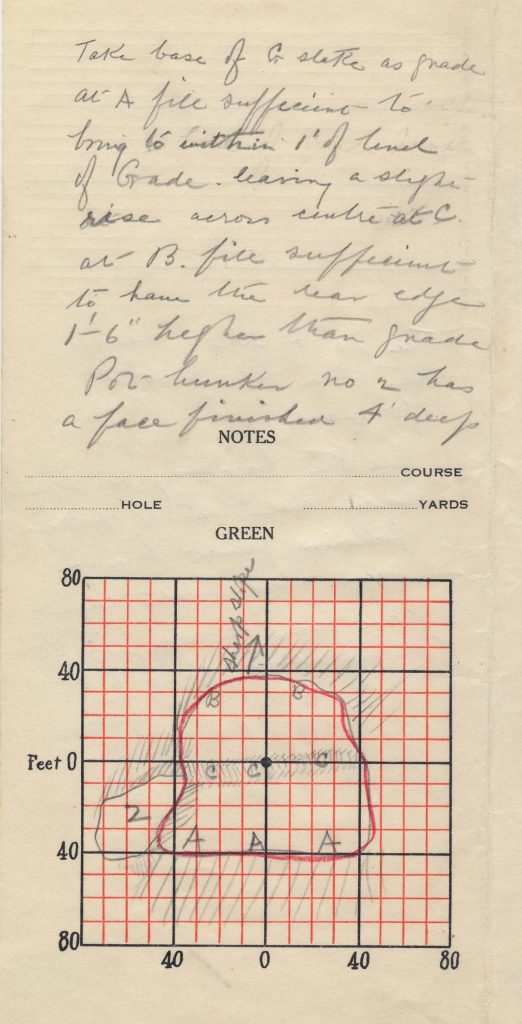 Take base of G stake as grade
at A fill sufficient to
bring to within 1' of level
of Grade. leaving a slight
rise across centre at C.
at B. fill sufficient
to have the rear edge
1'-6" higher than grade
Pot bunker no 2 has
a face finished 4' deep
NOTES
COURSE
HOLE YARDS
GREEN
80
sharp slope
40
B B
Feet 0
C C C
2
A A A
40
80
40 0 40 80